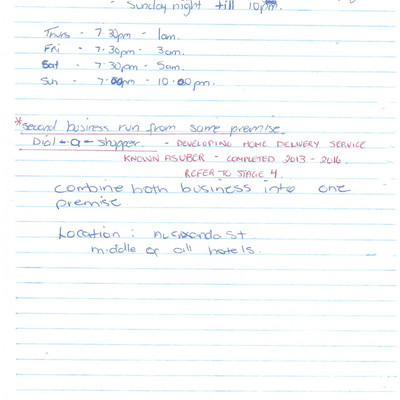 - Sunday night till 10pm.
Thurs - 7.30pm - 1am.
Fri - 7.30pm - 3am.
Sat - 7.30pm - 5am.
Sun - 7.00pm - 10.00pm.
*second business run from same premise.
Dial-a-shopper. - DEVELOPING HOME DELIVERY SERVICE
KNOWN AS UBER - COMPLETED 2013 - 2016.
REFER TO STAGE 4.
combine both business into one
premise.
Location: St
middle of all hotels.